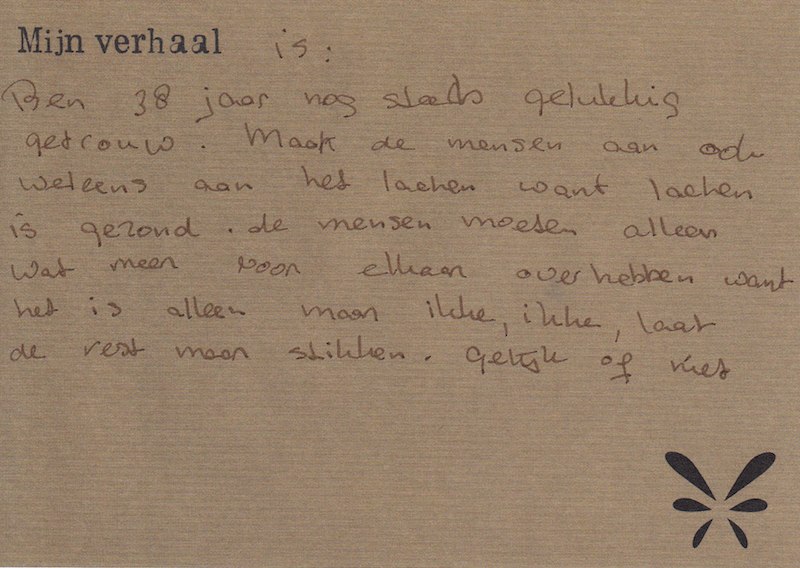 Mijn verhaal is:
Ben 38 jaar nog steeds gelukkig
getrouw. Maak de mensen aan ook
weleens aan het lachen want lachen
is gezond. de mensen moeten alleen
wat meer voor elkaar over hebben want
het is alleen maar ikke, ikke, laat
de rest maar stikken. Gelijk of niet